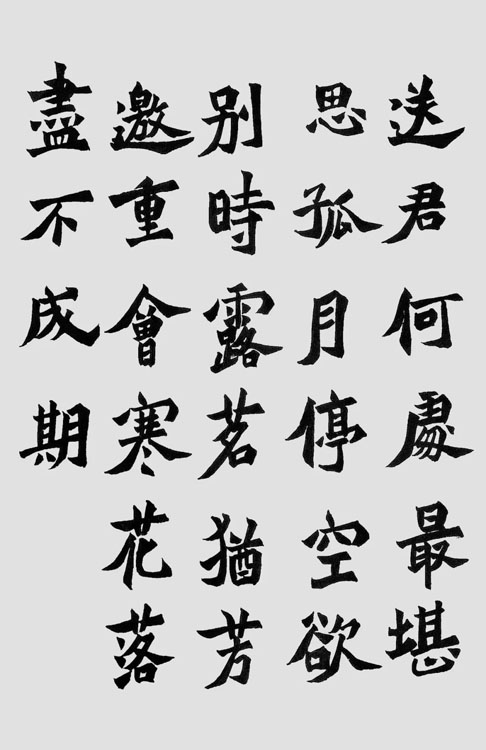 送君何處最堪
思孤月停空欲
別時露茗猶芳
邀重會寒花落
盡不成期